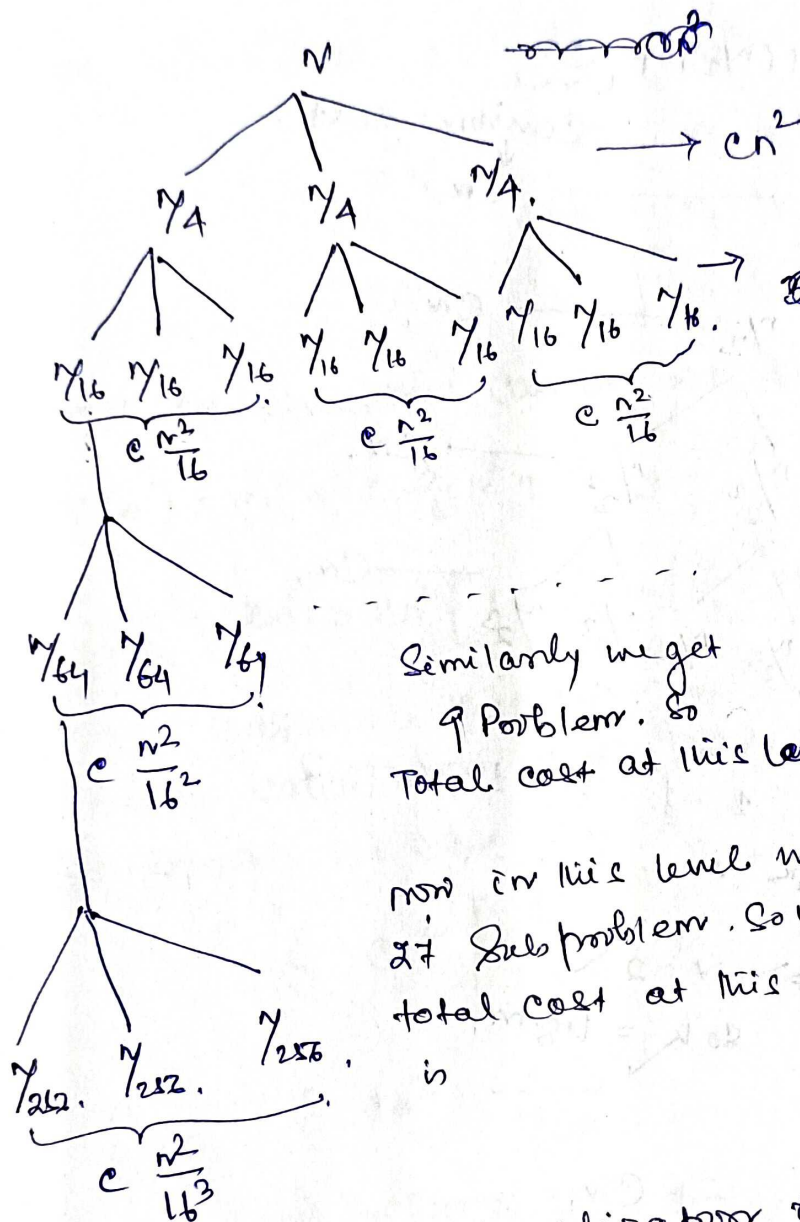 n
→ cn²
n/4 n/4 n/4.
→
n/16 n/16 n/16. n/16 n/16 n/16 n/16 n/16 n/16.
c n²/16 c n²/16 c n²/16
- - - - - - -
n/64 n/64 n/64.
c n²/16²
Similarly we get
9 Problem. So
Total cost at this le
now in this level
27 Subproblem. So
total cost at this
is
n/256.
c n²/16³